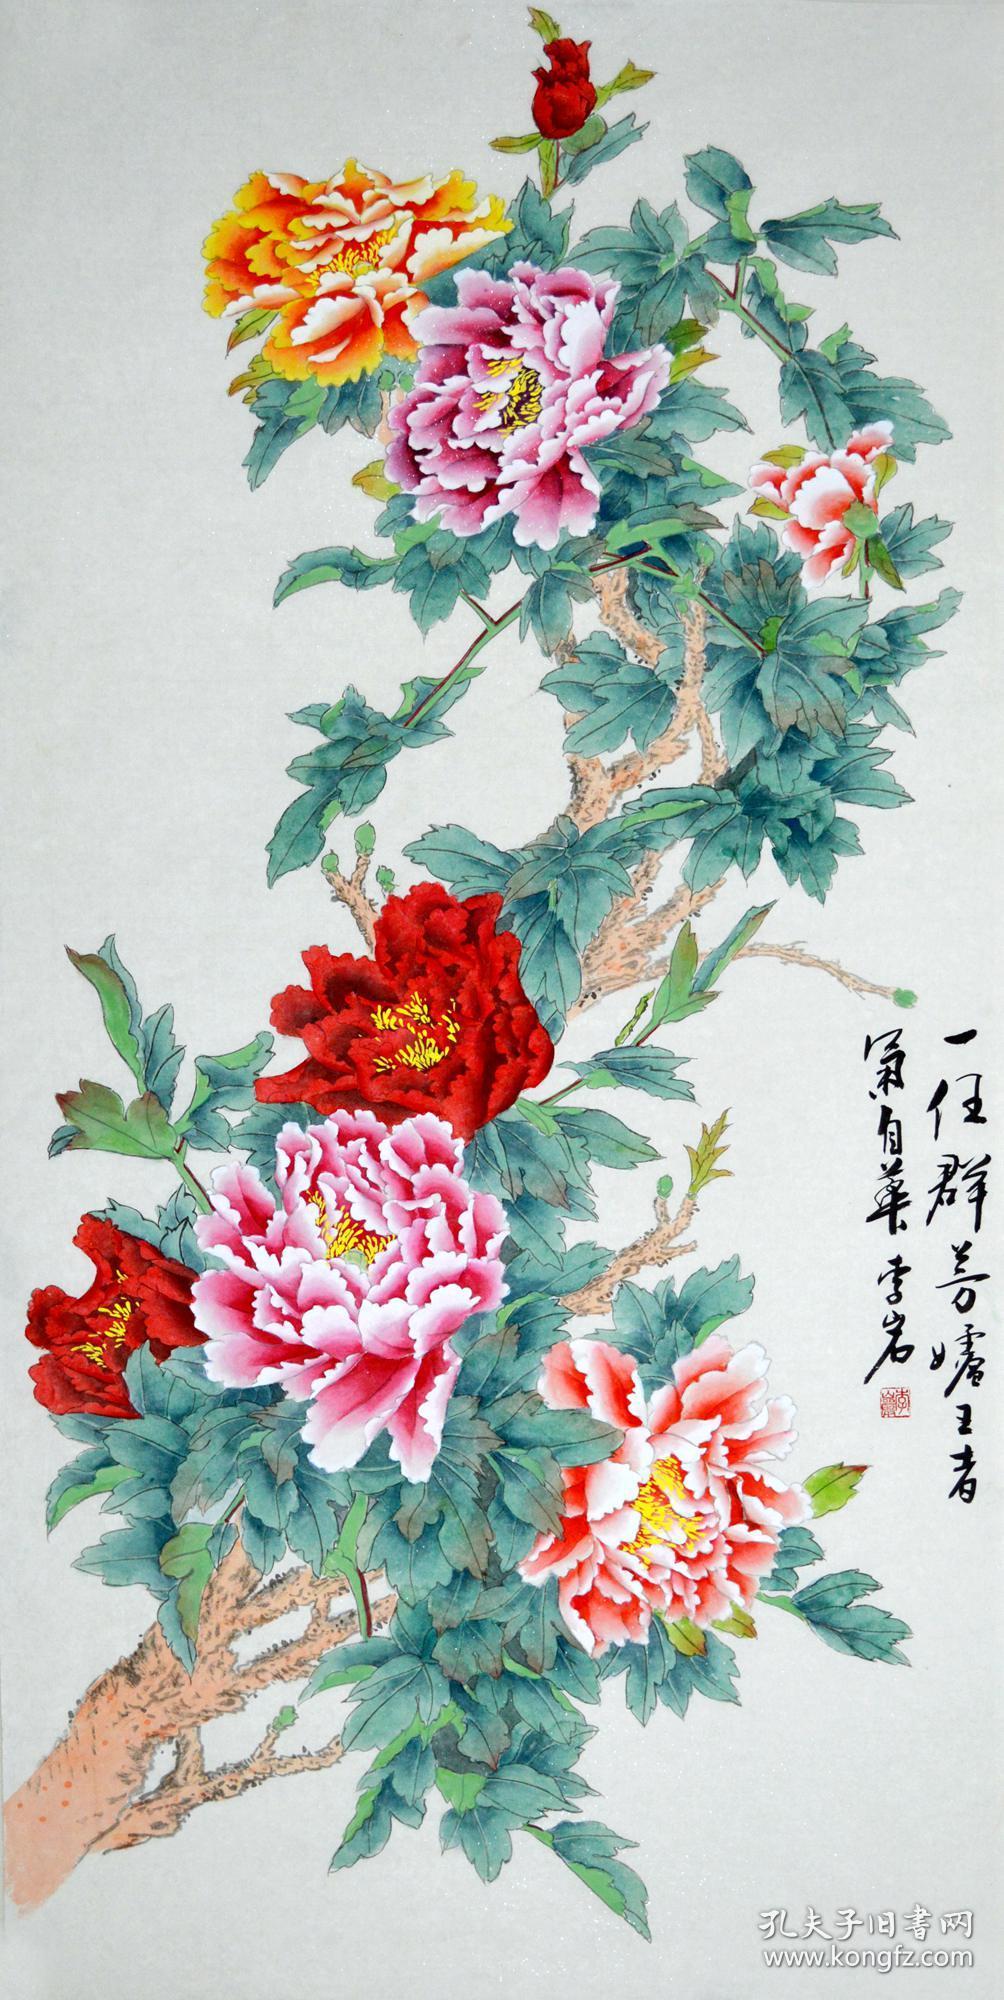 一任群芳妒王者
气自华 李岩
孔夫子旧书网
www.kongfz.com